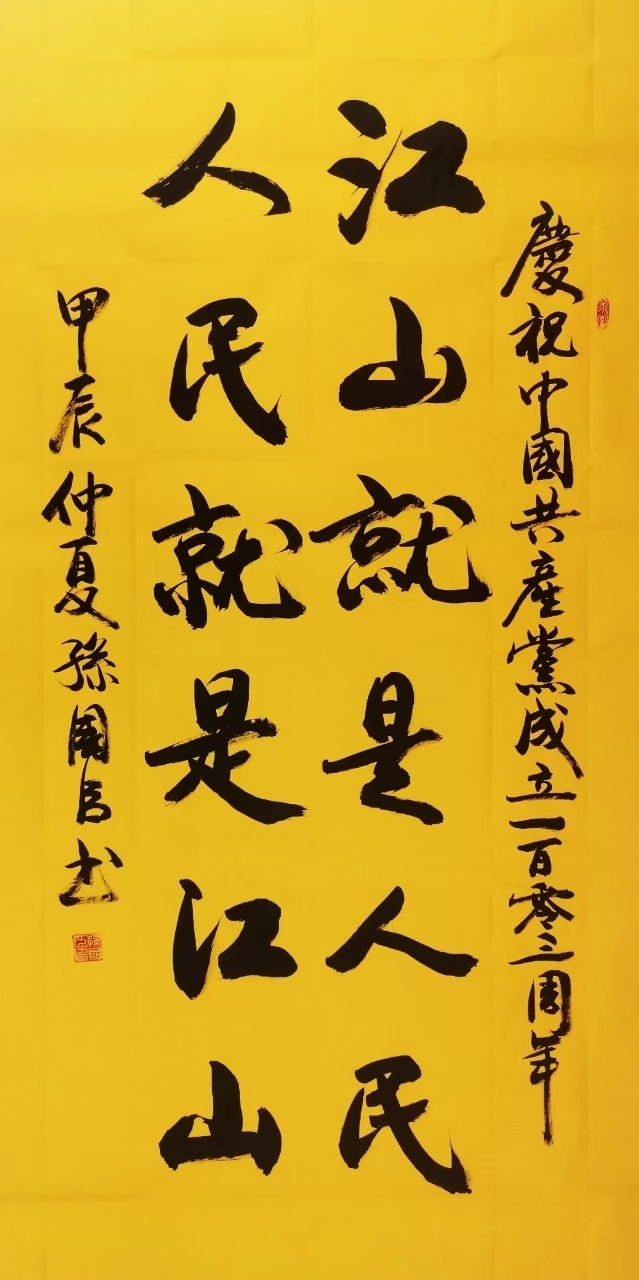 慶祝中國共產黨成立一百零三周年
江山就是人民
人民就是江山
甲辰仲夏孫國臣书